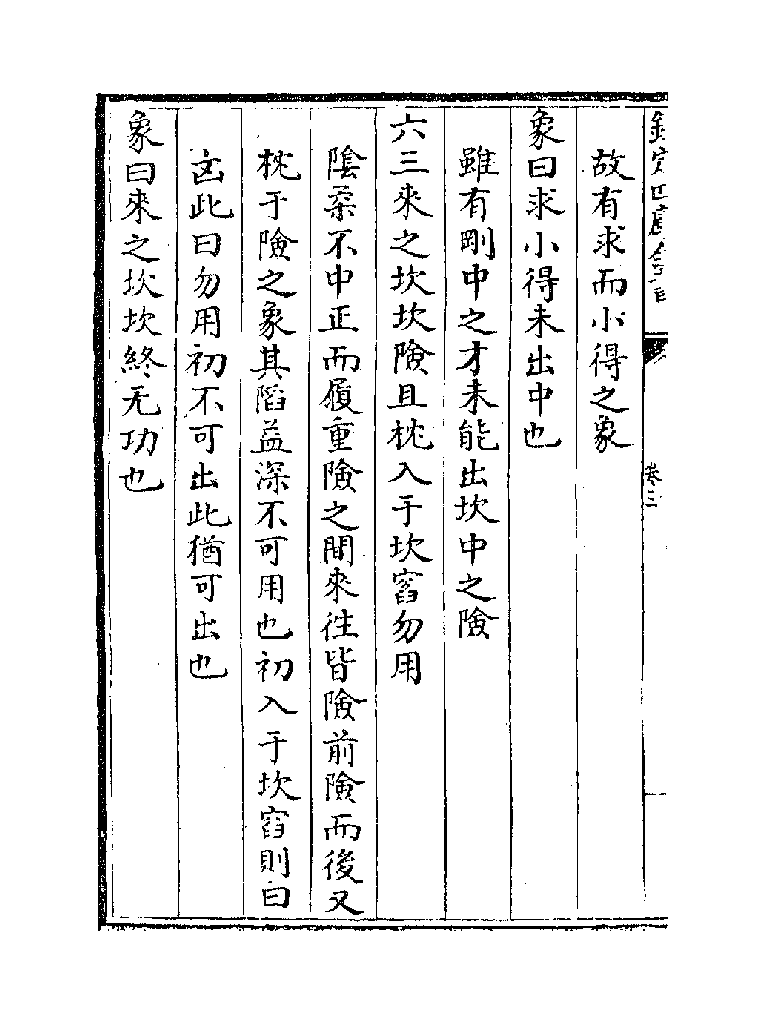 欽定四庫全書
卷三
故有求而小得之象
象曰求小得未出中也
雖有剛中之才未能出坎中之險
六三來之坎坎險且枕入于坎窞勿用
陰柔不中正而履重險之間來往皆險前險而後又
枕于險之象其陷益深不可用也初入于坎窞則曰
凶此曰勿用初不可出此猶可出也
象曰來之坎坎終无功也